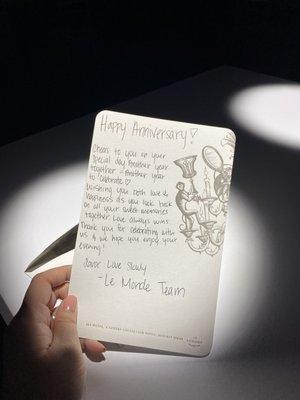 Happy Anniversary ♡
Cheers to you on your
special day. Another year
together - Another year
to celebrate ♡
Wishing you both love &
happiness as you look back
on all your sweet memories
together. Love always wins.
Thank you for celebrating with
us & we hope you enjoy your
evening!
Savor Love Slowly
- Le Monde Team